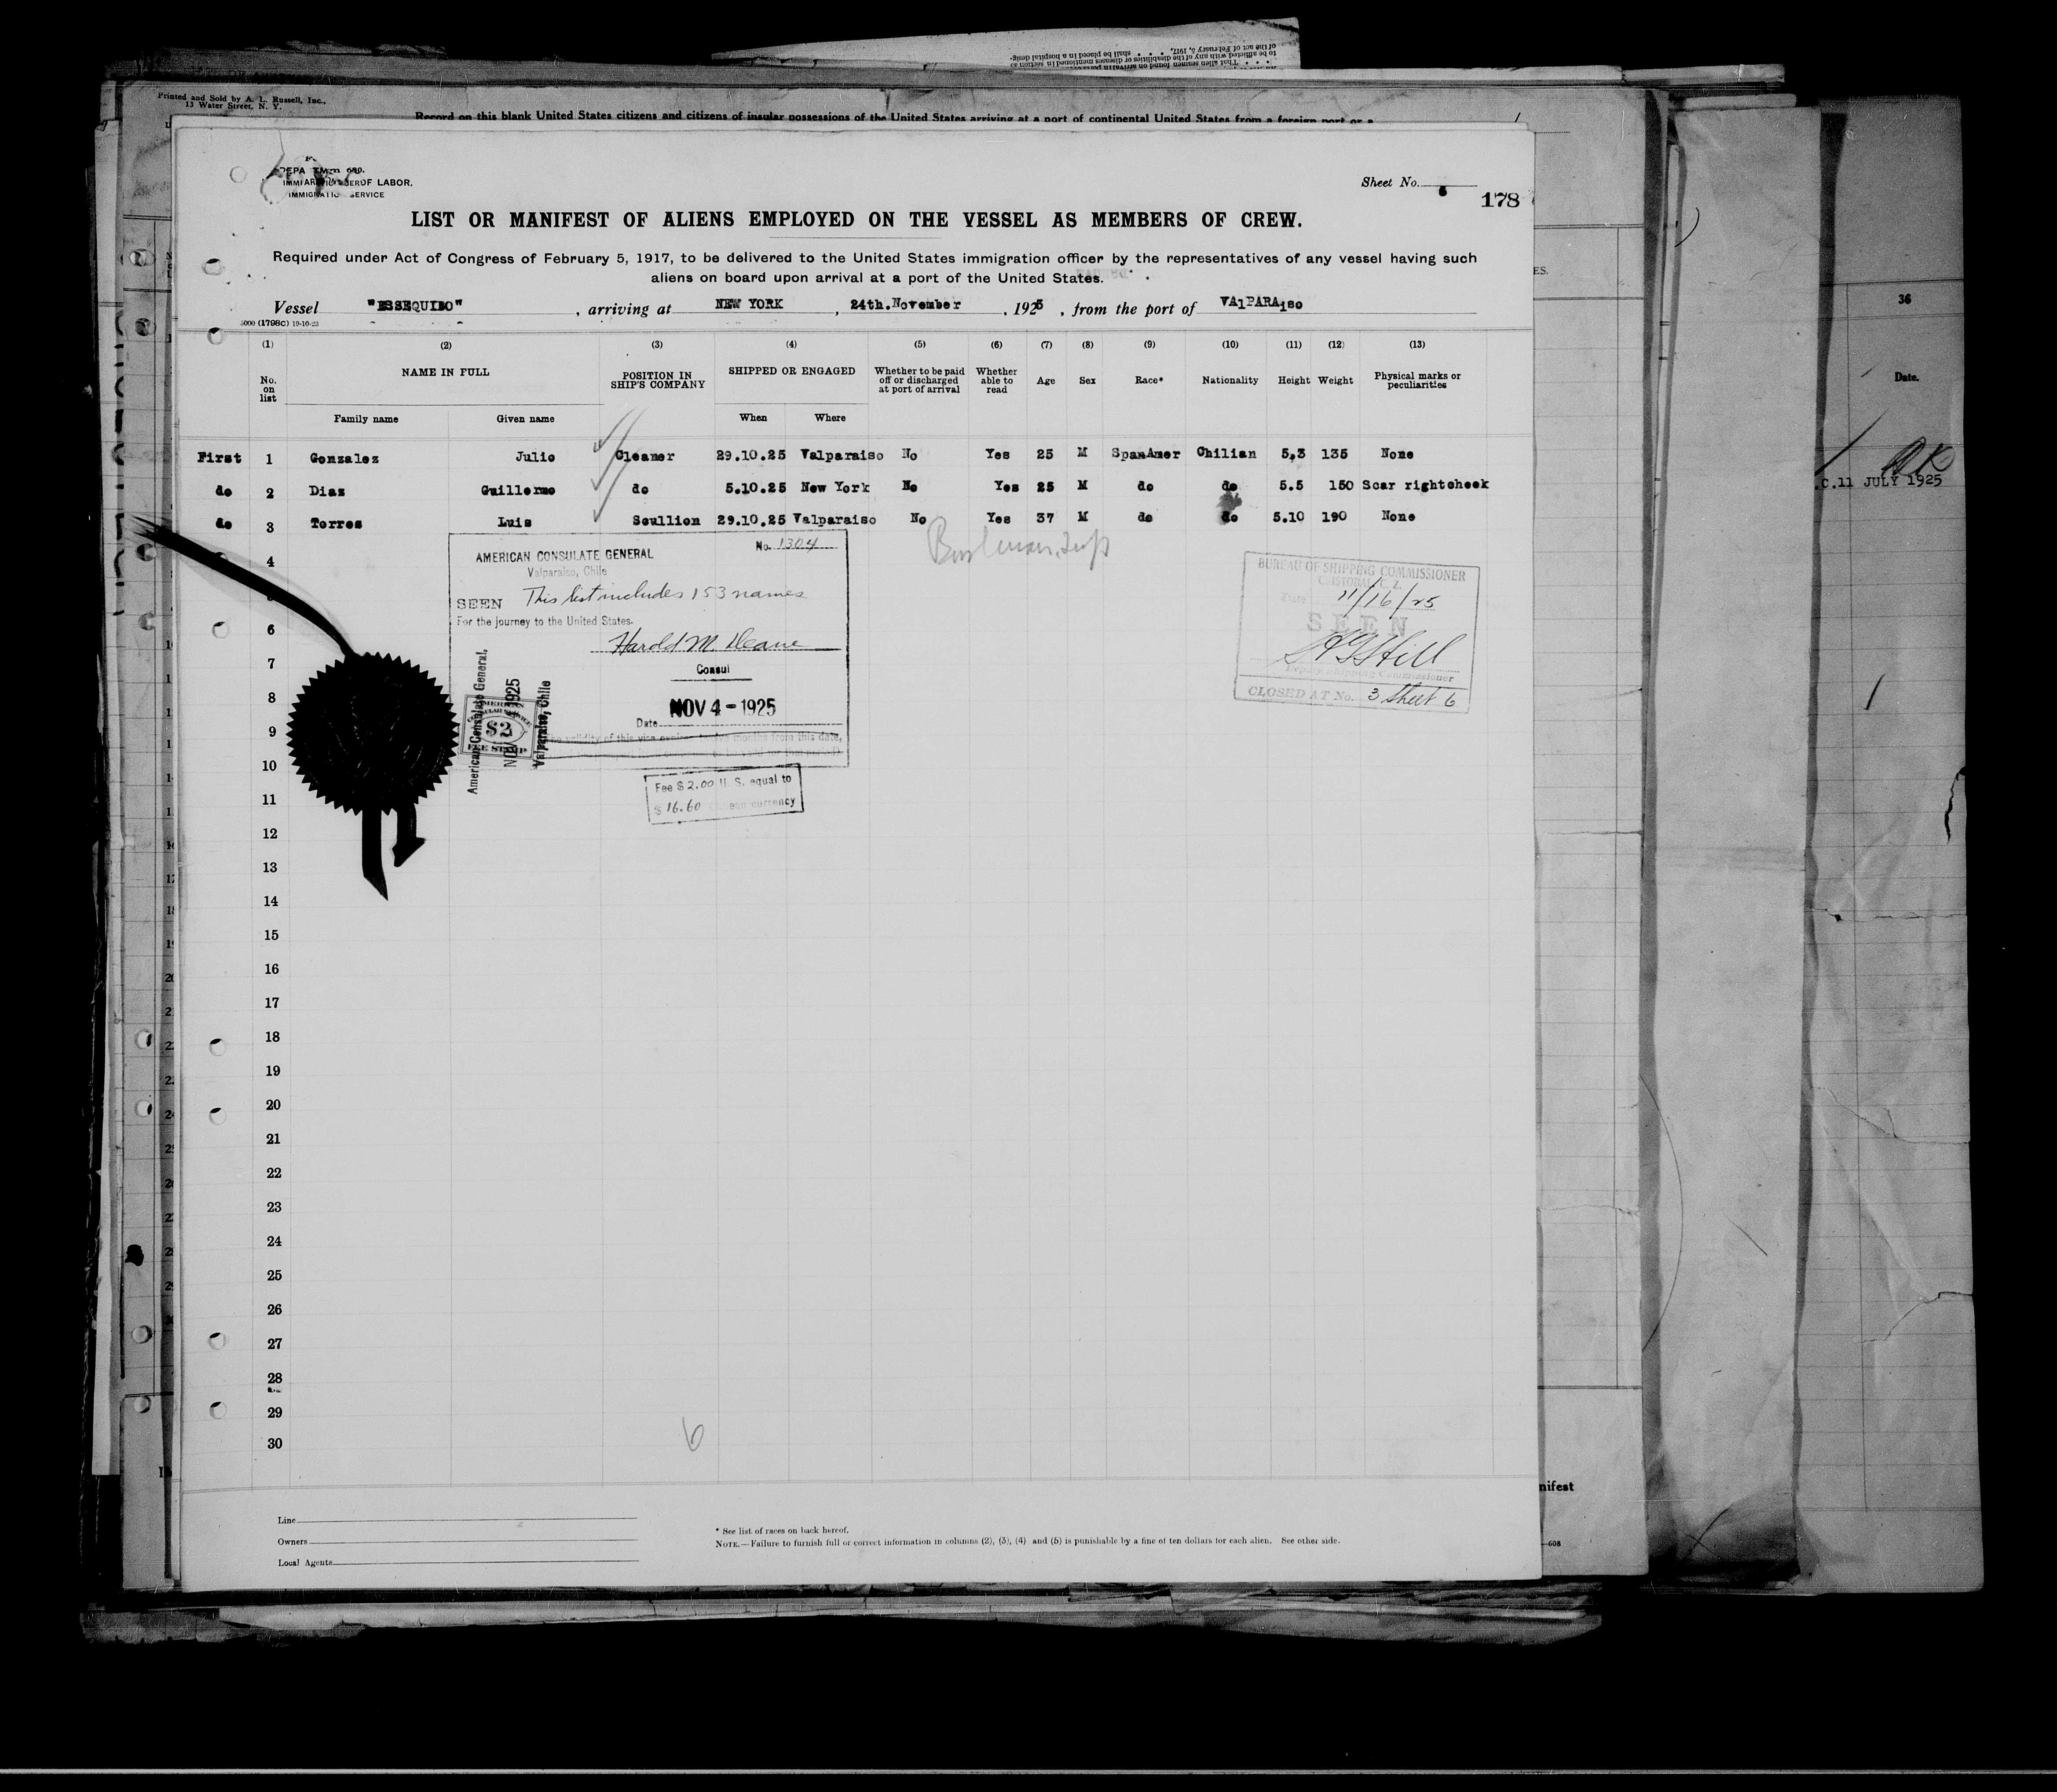 to be afflicted with any of the disabilities or diseases mentioned in section
of the act of February 5, 1917, . . . . shall be placed in a hospital desig-
. . . . That alien seamen found on arrival
Printed and Sold by A. L. Russell, Inc.,
13 Water Street, N. Y.
Record on this blank United States citizens and citizens of insular possessions of the United States arriving at a port of continental United States from a foreign port or a
OF LABOR.
IMMIGRATION SERVICE
Sheet No.
178
LIST OR MANIFEST OF ALIENS EMPLOYED ON THE VESSEL AS MEMBERS OF CREW.
Required under Act of Congress of February 5, 1917, to be delivered to the United States immigration officer by the representatives of any vessel having such
aliens on board upon arrival at a port of the United States.
Vessel "ESSEQUIBO", arriving at NEW YORK, 24th.November, 1925, from the port of VAlPARAiso
5000 (1798C) 19-10-23
(1) (2) (3) (4) (5) (6) (7) (8) (9) (10) (11) (12) (13)
No. on list NAME IN FULL POSITION IN SHIP'S COMPANY SHIPPED OR ENGAGED Whether to be paid off or discharged at port of arrival Whether able to read Age Sex Race* Nationality Height Weight Physical marks or peculiarities
Family name Given name When Where
First 1 Gonzalez Julio Cleaner 29.10.25 Valparaiso No Yes 25 M SpanAmer Chilian 5,3 135 None
do 2 Diaz Guillermo do 5.10.25 New York No Yes 25 M do do 5.5 150 Scar rightcheek
do 3 Torres Luis Scullion 29.10.25 Valparaiso No Yes 37 M do do 5.10 190 None
4
6
7
8
9
10
11
12
13
14
15
16
17
18
19
20
21
22
23
24
25
26
27
28
29
30
No. 1304
AMERICAN CONSULATE GENERAL
Valparaiso, Chile
SEEN This list includes 153 names
For the journey to the United States.
Harold M. Deane
Consul
NOV 4 - 1925
Date
The validity of this vice expires months from this date,
American Consulate General.
NOV 4 1925
Valparaiso, Chile
AMERICAN
CONSULAR SERVICE
$2
FEE STAMP
Fee $ 2.00 U. S. equal to
$ 16.60 currency
BUREAU OF SHIPPING COMMISSIONER
CRISTOBAL, C. Z.
Date 11/16/25
SEEN
Deputy Shipping Commissioner
CLOSED AT No. 3 Sheet 6
6
Line
Owners
Local Agents
* See list of races on back hereof.
NOTE.—Failure to furnish full or correct information in columns (2), (3), (4) and (5) is punishable by a fine of ten dollars for each alien. See other side.
ES.
nifest
—608
36
Date.
.C.11 JULY 1925